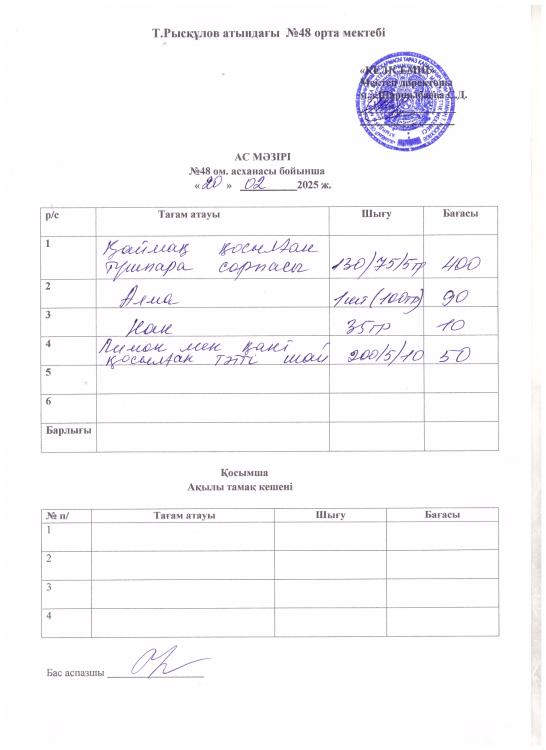 Т.Рысқұлов атындағы №48 орта мектебі
«КЕЛІСЕМІН»
Мектеп директоры
С.Д.
АС МӘЗІРІ
№48 ом. асханасы бойынша
«20» 02 2025 ж.
р/с Тағам атауы Шығу Бағасы
1 Қаймақ қосылған
тұшпара сорпасы 130/75/5гр 400
2 Алма 1шт (100гр) 90
3 Нан 35гр 10
4 Лимон мен қант
қосылған тәтті шай 200/5/10 50
5
6
Барлығы
Қосымша
Ақылы тамақ кешені
№ п/ Тағам атауы Шығу Бағасы
1
2
3
4
Бас аспазшы